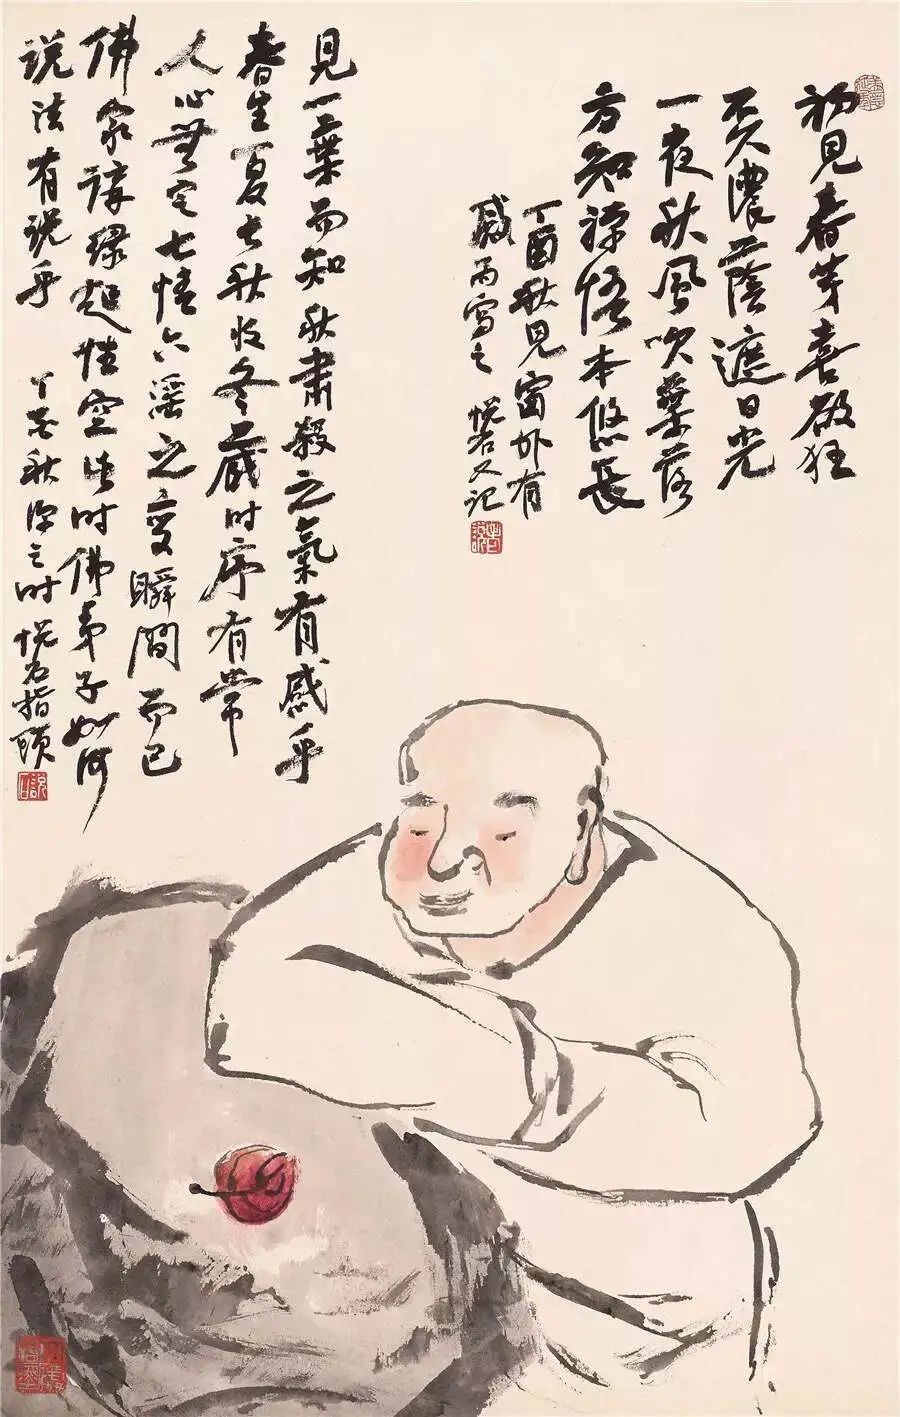 初見春芽喜欲狂
不久濃蔭遮日光
一夜秋風吹葉落
方知禪悟本悠長
丁酉秋見窗外有
感而寫之 悅石又记
見一葉而知秋肅殺之氣有感乎
春生夏长秋收冬藏时序有常
人心無定七情六淫之變瞬間而已
佛家講缘起性空此时佛弟子如何
说法有说乎 丁酉秋深之时 悦石指頭